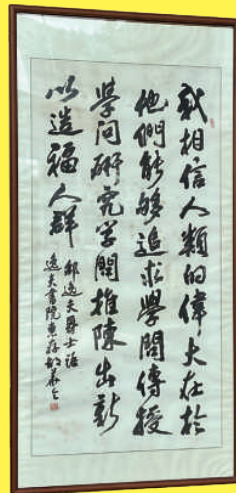 我相信人類的偉大在於
他們能够追求學問傳授
學問研究學問推陳出新
以造福人群
邵逸夫爵士語
逸夫書院惠存